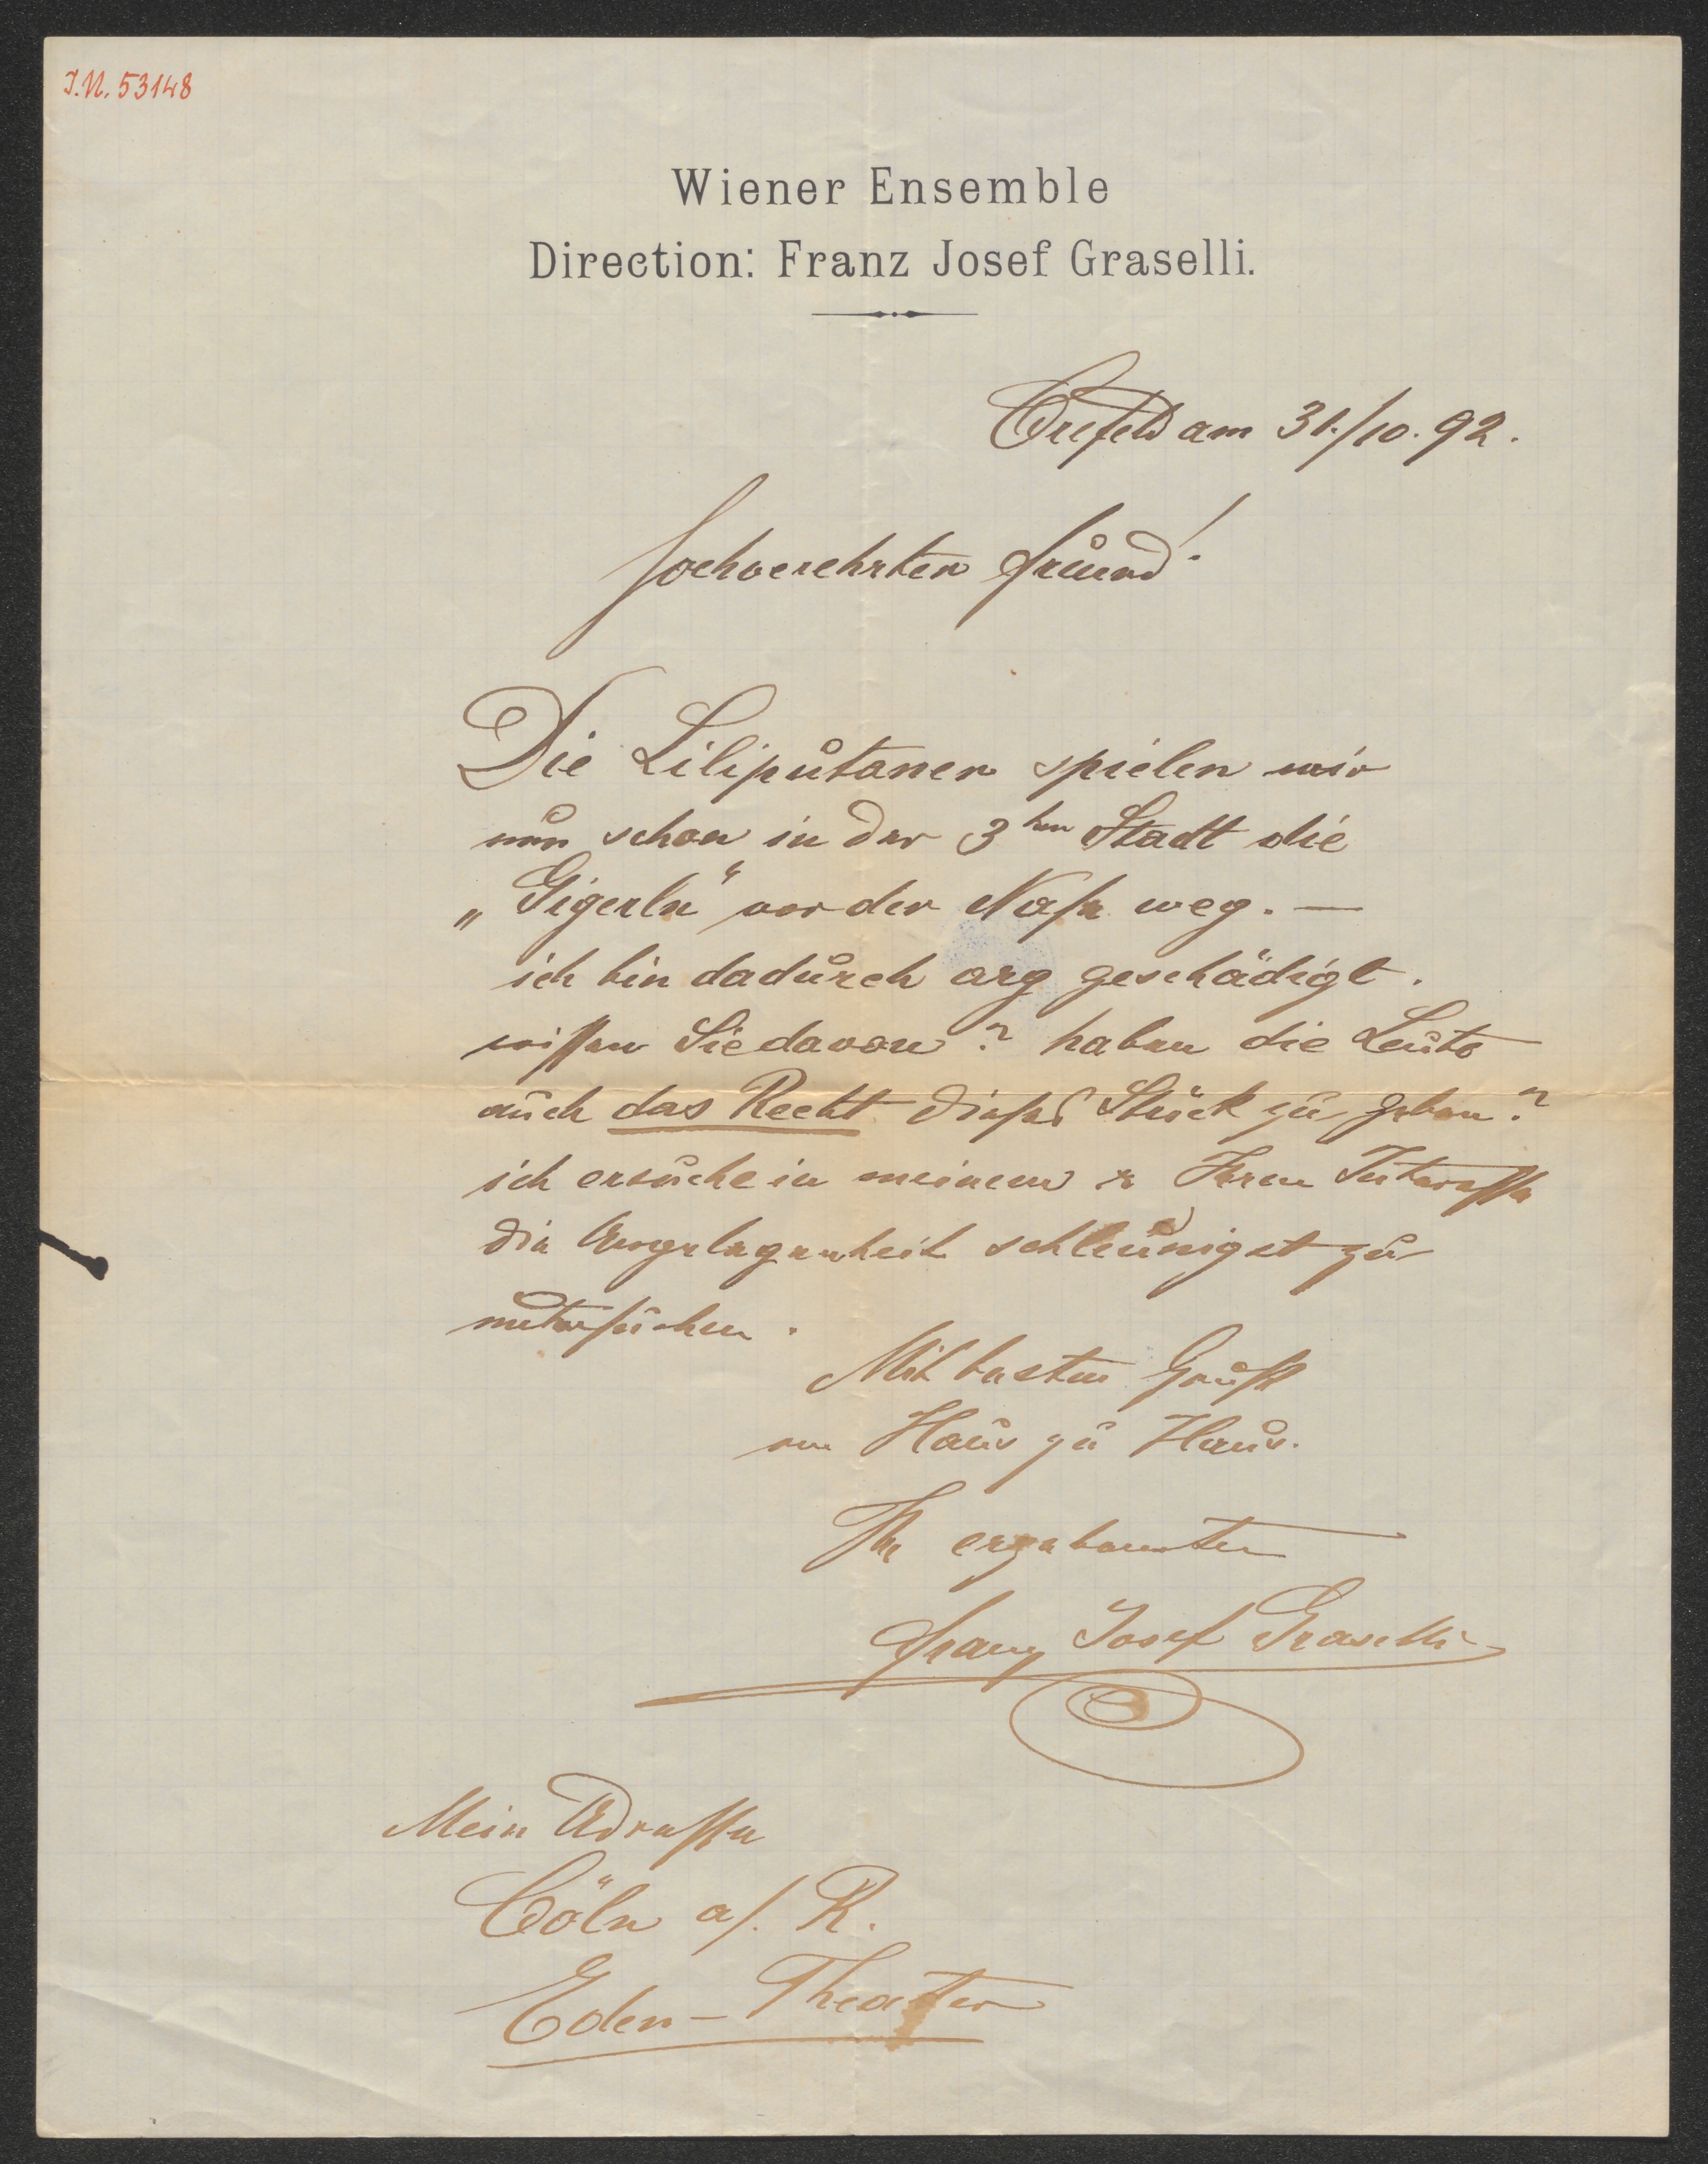 I.N. 53148
Wiener Ensemble
Direction: Franz Josef Graselli.
Crefeld am 31./10. 92.
Hochverehrter Freund!
Die Liliputaner spielen mir
nun schon in der 3ten Stadt die
„Gigerln" vor der Nase weg. —
ich bin dadurch arg geschädigt.
wissen Sie davon? haben die Leute
auch das Recht dieses Stück zu geben?
ich ersuche in meinem & Ihrem Interesse
die Angelegenheit schleunigst zu
untersuchen.
Mit besten Grüssen
von Haus zu Haus.
Ihr ergebenster
Franz Josef Graselli
Mein Adresse
Cöln a/. R.
Eden-Theater